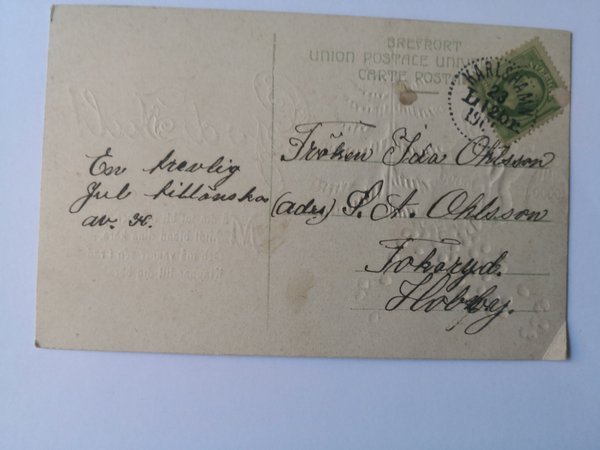 BREFKORT
UNION POSTALE UNIV
CARTE POSTA
KARLSHAMN
23
En trevlig
Jul tillönska
av. H.
Fröken Ida Ohlsson
(adrs) S. A. Ohlsson
Fokaryd.
Hoby.